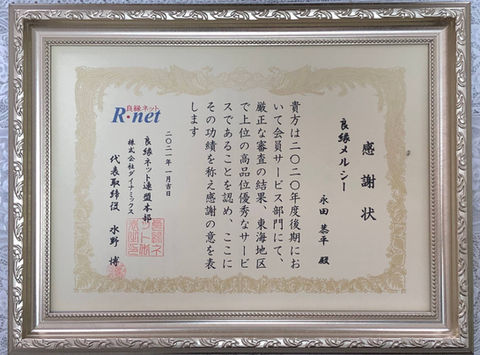 感謝状
良縁メルシー
永田恭平 殿
貴方は二〇二〇年度後期にお
いて会員サービス部門にて、
厳正な審査の結果、東海地区
で上位の高品位優秀なサービ
スであることを認め、ここに
その功績を称え感謝の意を表
します
二〇二一年 一月吉日
良縁ネット連盟本部
株式会社ダイナミックス
代表取締役 水野 博
良縁ネット
R・net